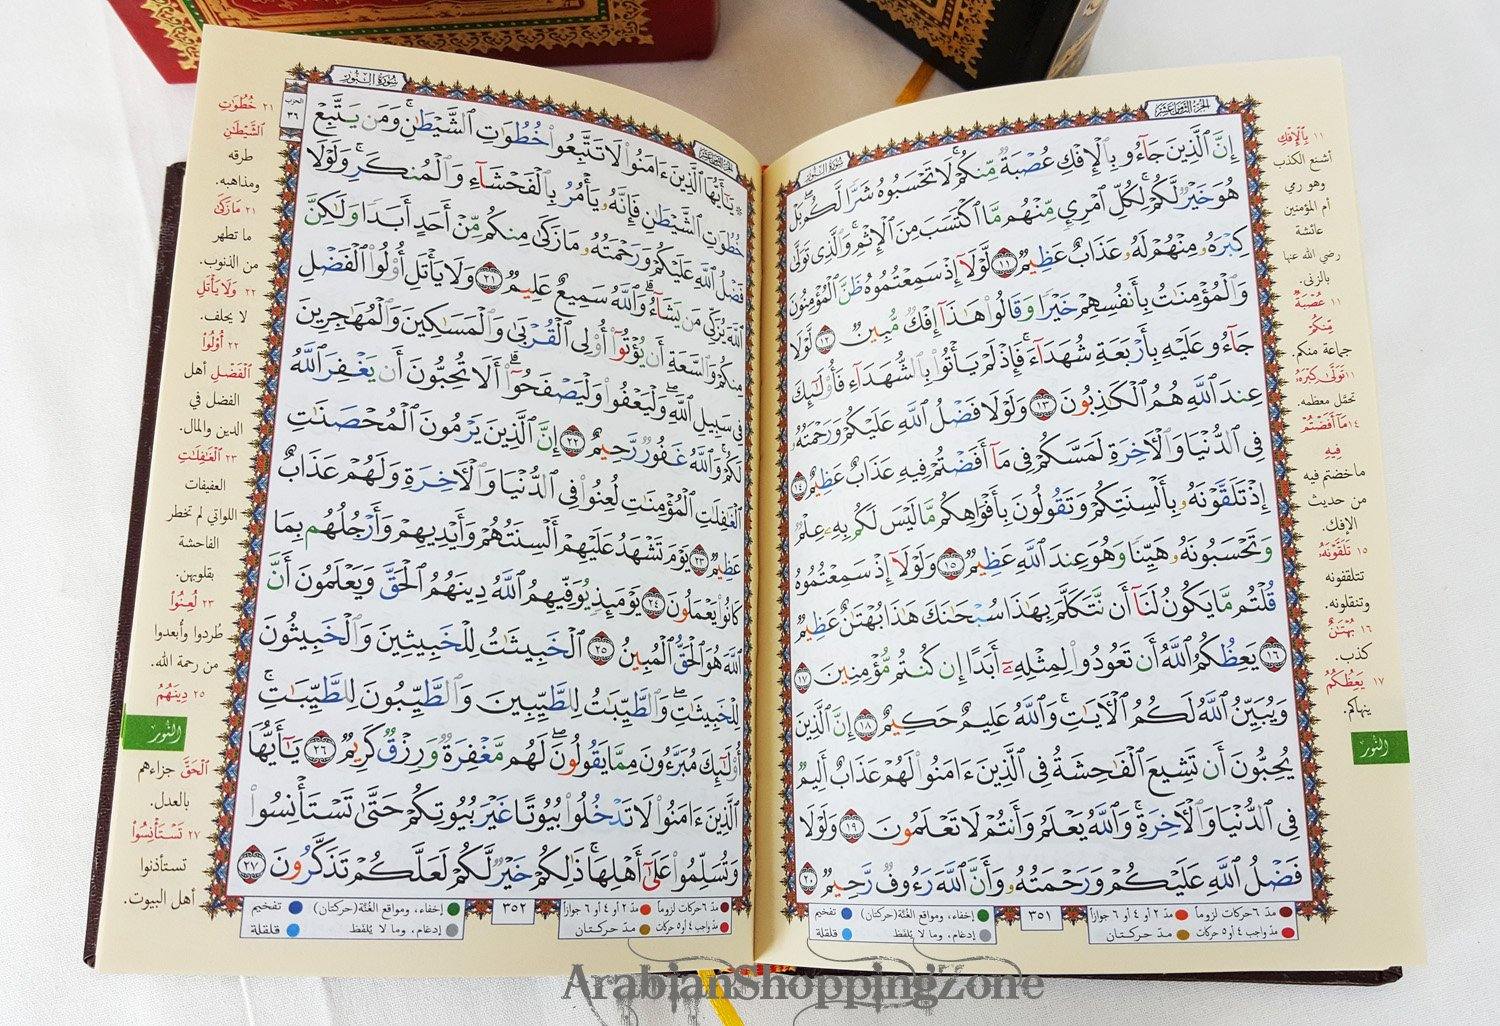 الجزء الثامن عشر
سورة النور
إِنَّ ٱلَّذِينَ جَآءُو بِٱلْإِفْكِ عُصْبَةٌ مِّنكُمْ ۚ لَا تَحْسَبُوهُ شَرًّا لَّكُم ۖ بَلْ
هُوَ خَيْرٌ لَّكُمْ ۚ لِكُلِّ ٱمْرِئٍ مِّنْهُم مَّا ٱكْتَسَبَ مِنَ ٱلْإِثْمِ ۚ وَٱلَّذِى تَوَلَّىٰ
كِبْرَهُۥ مِنْهُمْ لَهُۥ عَذَابٌ عَظِيمٌ ١١ لَّوْلَآ إِذْ سَمِعْتُمُوهُ ظَنَّ ٱلْمُؤْمِنُونَ
وَٱلْمُؤْمِنَٰتُ بِأَنفُسِهِمْ خَيْرًا وَقَالُوا۟ هَٰذَآ إِفْكٌ مُّبِينٌ ١٢ لَّوْلَا
جَآءُو عَلَيْهِ بِأَرْبَعَةِ شُهَدَآءَ ۚ فَإِذْ لَمْ يَأْتُوا۟ بِٱلشُّهَدَآءِ فَأُو۟لَٰٓئِكَ
عِندَ ٱللَّهِ هُمُ ٱلْكَٰذِبُونَ ١٣ وَلَوْلَا فَضْلُ ٱللَّهِ عَلَيْكُمْ وَرَحْمَتُهُۥ
فِى ٱلدُّنْيَا وَٱلْءَاخِرَةِ لَمَسَّكُمْ فِى مَآ أَفَضْتُمْ فِيهِ عَذَابٌ عَظِيمٌ ١٤
إِذْ تَلَقَّوْنَهُۥ بِأَلْسِنَتِكُمْ وَتَقُولُونَ بِأَفْوَاهِكُم مَّا لَيْسَ لَكُم بِهِۦ عِلْمٌ
وَتَحْسَبُونَهُۥ هَيِّنًا وَهُوَ عِندَ ٱللَّهِ عَظِيمٌ ١٥ وَلَوْلَآ إِذْ سَمِعْتُمُوهُ
قُلْتُم مَّا يَكُونُ لَنَآ أَن نَّتَكَلَّمَ بِهَٰذَا سُبْحَٰنَكَ هَٰذَا بُهْتَٰنٌ عَظِيمٌ
١٦ يَعِظُكُمُ ٱللَّهُ أَن تَعُودُوا۟ لِمِثْلِهِۦٓ أَبَدًا إِن كُنتُم مُّؤْمِنِينَ ١٧
وَيُبَيِّنُ ٱللَّهُ لَكُمُ ٱلْءَايَٰتِ ۚ وَٱللَّهُ عَلِيمٌ حَكِيمٌ ١٨ إِنَّ ٱلَّذِينَ
يُحِبُّونَ أَن تَشِيعَ ٱلْفَٰحِشَةُ فِى ٱلَّذِينَ ءَامَنُوا۟ لَهُمْ عَذَابٌ أَلِيمٌ
فِى ٱلدُّنْيَا وَٱلْءَاخِرَةِ ۚ وَٱللَّهُ يَعْلَمُ وَأَنتُمْ لَا تَعْلَمُونَ ١٩ وَلَوْلَا
فَضْلُ ٱللَّهِ عَلَيْكُمْ وَرَحْمَتُهُۥ وَأَنَّ ٱللَّهَ رَءُوفٌ رَّحِيمٌ ٢٠
١١ بِٱلْإِفْكِ
أشنع الكذب
وهو رمي
أم المؤمنين
عائشة
رضي الله عنها
بالزنى.
١١ عُصْبَةٌ
مِّنكُمْ
جماعة منكم.
١١ تَوَلَّىٰ كِبْرَهُۥ
تحمّل معظمه.
١٤ مَآ أَفَضْتُمْ
فِيهِ
ما خضتم فيه
من حديث
الإفك.
١٥ تَلَقَّوْنَهُۥ
تتلقفونه
وتنقلونه.
١٦ بُهْتَٰنٌ
كذب.
١٧ يَعِظُكُمُ
ينهاكم.
النّور
مدّ ٦ حركات لزوماً
مدّ ٢ أو ٤ أو ٦ جوازاً
مدّ واجب ٤ أو ٥ حركات
مدّ حركتان
٣٥١
إخفاء، ومواقع الغُنَّة (حركتان)
تفخيم
إدغام، وما لا يُلفظ
قلقلة
الجزء الثامن عشر
سورة النور
الحزب
٣٦
يَٰٓأَيُّهَا ٱلَّذِينَ ءَامَنُوا۟ لَا تَتَّبِعُوا۟ خُطُوَٰتِ ٱلشَّيْطَٰنِ ۚ وَمَن يَتَّبِعْ
خُطُوَٰتِ ٱلشَّيْطَٰنِ فَإِنَّهُۥ يَأْمُرُ بِٱلْفَحْشَآءِ وَٱلْمُنكَرِ ۚ وَلَوْلَا
فَضْلُ ٱللَّهِ عَلَيْكُمْ وَرَحْمَتُهُۥ مَا زَكَىٰ مِنكُم مِّنْ أَحَدٍ أَبَدًا وَلَٰكِنَّ
ٱللَّهَ يُزَكِّى مَن يَشَآءُ ۗ وَٱللَّهُ سَمِيعٌ عَلِيمٌ ٢١ وَلَا يَأْتَلِ أُو۟لُوا۟ ٱلْفَضْلِ
مِنكُمْ وَٱلسَّعَةِ أَن يُؤْتُوٓا۟ أُو۟لِى ٱلْقُرْبَىٰ وَٱلْمَسَٰكِينَ وَٱلْمُهَٰجِرِينَ
فِى سَبِيلِ ٱللَّهِ ۖ وَلْيَعْفُوا۟ وَلْيَصْفَحُوٓا۟ ۗ أَلَا تُحِبُّونَ أَن يَغْفِرَ ٱللَّهُ
لَكُمْ ۗ وَٱللَّهُ غَفُورٌ رَّحِيمٌ ٢٢ إِنَّ ٱلَّذِينَ يَرْمُونَ ٱلْمُحْصَنَٰتِ
ٱلْغَٰفِلَٰتِ ٱلْمُؤْمِنَٰتِ لُعِنُوا۟ فِى ٱلدُّنْيَا وَٱلْءَاخِرَةِ وَلَهُمْ عَذَابٌ
عَظِيمٌ ٢٣ يَوْمَ تَشْهَدُ عَلَيْهِمْ أَلْسِنَتُهُمْ وَأَيْدِيهِمْ وَأَرْجُلُهُم بِمَا
كَانُوا۟ يَعْمَلُونَ ٢٤ يَوْمَئِذٍ يُوَفِّيهِمُ ٱللَّهُ دِينَهُمُ ٱلْحَقَّ وَيَعْلَمُونَ أَنَّ
ٱللَّهَ هُوَ ٱلْحَقُّ ٱلْمُبِينُ ٢٥ ٱلْخَبِيثَٰتُ لِلْخَبِيثِينَ وَٱلْخَبِيثُونَ
لِلْخَبِيثَٰتِ ۖ وَٱلطَّيِّبَٰتُ لِلطَّيِّبِينَ وَٱلطَّيِّبُونَ لِلطَّيِّبَٰتِ ۚ
أُو۟لَٰٓئِكَ مُبَرَّءُونَ مِمَّا يَقُولُونَ ۖ لَهُم مَّغْفِرَةٌ وَرِزْقٌ كَرِيمٌ ٢٦ يَٰٓأَيُّهَا
ٱلَّذِينَ ءَامَنُوا۟ لَا تَدْخُلُوا۟ بُيُوتًا غَيْرَ بُيُوتِكُمْ حَتَّىٰ تَسْتَأْنِسُوا۟
وَتُسَلِّمُوا۟ عَلَىٰٓ أَهْلِهَا ۚ ذَٰلِكُمْ خَيْرٌ لَّكُمْ لَعَلَّكُمْ تَذَكَّرُونَ ٢٧
٢١ خُطُوَٰتِ
ٱلشَّيْطَٰنِ
طرقه
ومذاهبه.
٢١ مَا زَكَىٰ
ما تطهر
من الذنوب.
٢٢ وَلَا يَأْتَلِ
لا يحلف.
٢٢ أُو۟لُوا۟
ٱلْفَضْلِ أهل
الفضل في
الدين والمال.
٢٣ ٱلْغَٰفِلَٰتِ
العفيفات
اللواتي لم تخطر
الفاحشة
بقلوبهن.
٢٣ لُعِنُوا۟
طُردوا وأُبعدوا
من رحمة الله.
٢٥ دِينَهُمُ
النّور
ٱلْحَقَّ جزاءهم
بالعدل.
٢٧ تَسْتَأْنِسُوا۟
تستأذنوا
أهل البيوت.
مدّ ٦ حركات لزوماً
مدّ ٢ أو ٤ أو ٦ جوازاً
مدّ واجب ٤ أو ٥ حركات
مدّ حركتان
٣٥٢
إخفاء، ومواقع الغُنَّة (حركتان)
تفخيم
إدغام، وما لا يُلفظ
قلقلة
ArabianShoppingZone